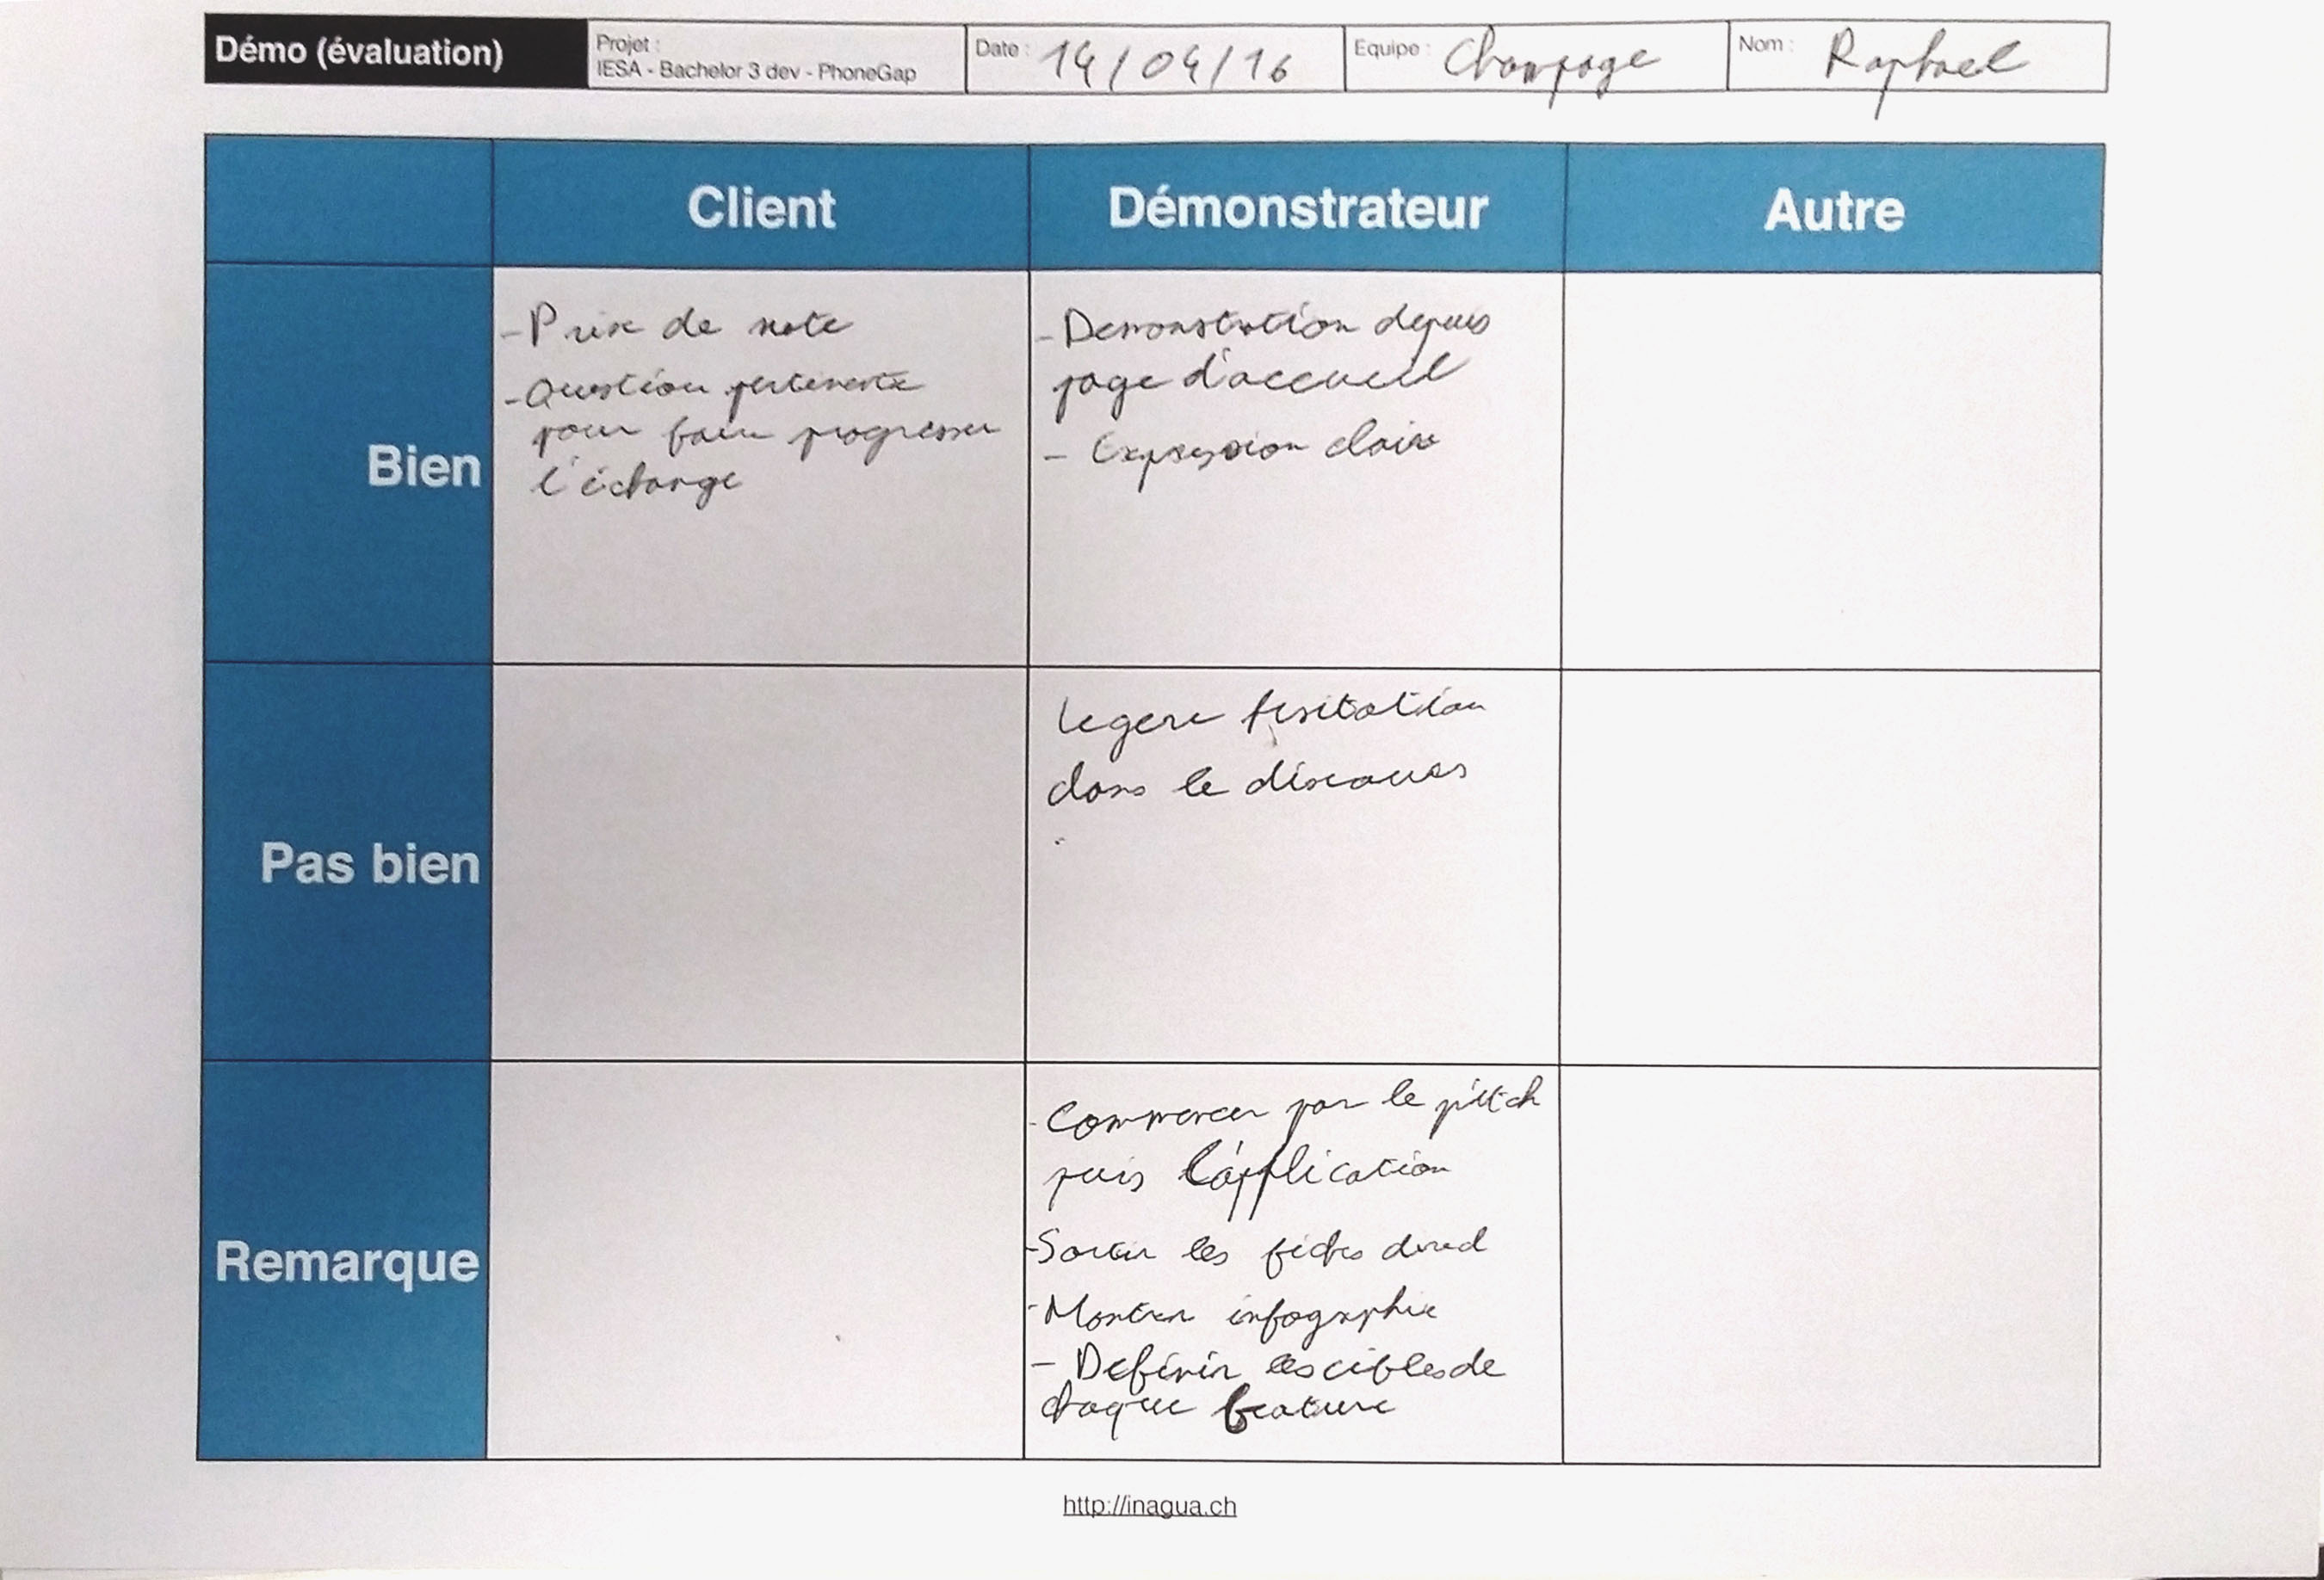 Démo (évaluation)
Projet :
IESA - Bachelor 3 dev - PhoneGap
Date : 14/04/16
Equipe : Champage
Nom : Raphael
Client
Démonstrateur
Autre
Bien
- Prise de note
- Question pertinente
pour faire progresser
l'échange
- Demonstration depuis
page d'accueil
- Expression claire
Pas bien
Legere hesitation
dans le discours
Remarque
- Commencer par le pitch
puis l'application
- Sortir les fiches
- Montrer infographie
- Definir les cibles de
chaque feature
http://inagua.ch